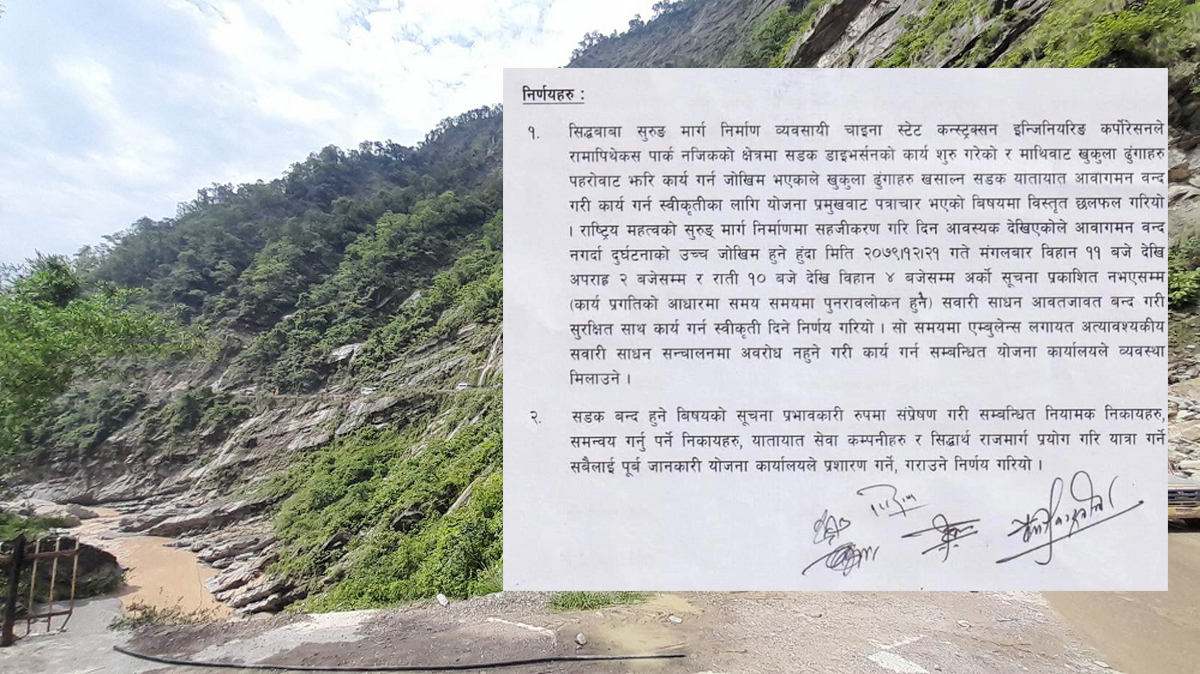 निर्णयहरु :
१. सिद्धबाबा सुरुङ मार्ग निर्माण व्यवसायी चाइना स्टेट कन्स्ट्रक्सन इन्जिनियरिङ कर्पोरेसनले
रामापिथेकस पार्क नजिकको क्षेत्रमा सडक डाइभर्सनको कार्य शुरु गरेको र माथिबाट खुकुला ढुंगाहरु
पहरोबाट झरि कार्य गर्न जोखिम भएकाले खुकुला ढुंगाहरु खसाल्न सडक यातायात आवागमन वन्द
गरी कार्य गर्न स्वीकृतीका लागि योजना प्रमुखबाट पत्राचार भएको विषयमा विस्तृत छलफल गरियो
। राष्ट्रिय महत्वको सुरुङ् मार्ग निर्माणमा सहजीकरण गरि दिन आवस्यक देखिएकोले आवागमन वन्द
नगर्दा दुर्घटनाको उच्च जोखिम हुने हुंदा मिति २०७९।१२।२१ गते मंगलबार विहान ११ बजे देखि
अपराह्न २ बजेसम्म र राती १० बजे देखि विहान ४ बजेसम्म अर्को सूचना प्रकाशित नभएसम्म
(कार्य प्रगतिको आधारमा समय समयमा पुनरावलोकन हुनै) सवारी साधन आवतजावत बन्द गरी
सुरक्षित साथ कार्य गर्न स्वीकृती दिने निर्णय गरियो । सो समयमा एम्बुलेन्स लगायत अत्यावश्यकीय
सवारी साधन सन्चालनमा अवरोध नहुने गरी कार्य गर्न सम्बन्धित योजना कार्यालयले व्यवस्था
मिलाउने ।
२. सडक बन्द हुने बिषयको सूचना प्रभावकारी रुपमा संप्रेषण गरी सम्बन्धित नियामक निकायहरु,
समन्वय गर्नु पर्ने निकायहरु, यातायात सेवा कम्पनीहरु र सिद्धार्थ राजमार्ग प्रयोग गरि यात्रा गर्ने
सबैलाई पूर्ब जानकारी योजना कार्यालयले प्रशारण गर्ने, गराउने निर्णय गरियो ।